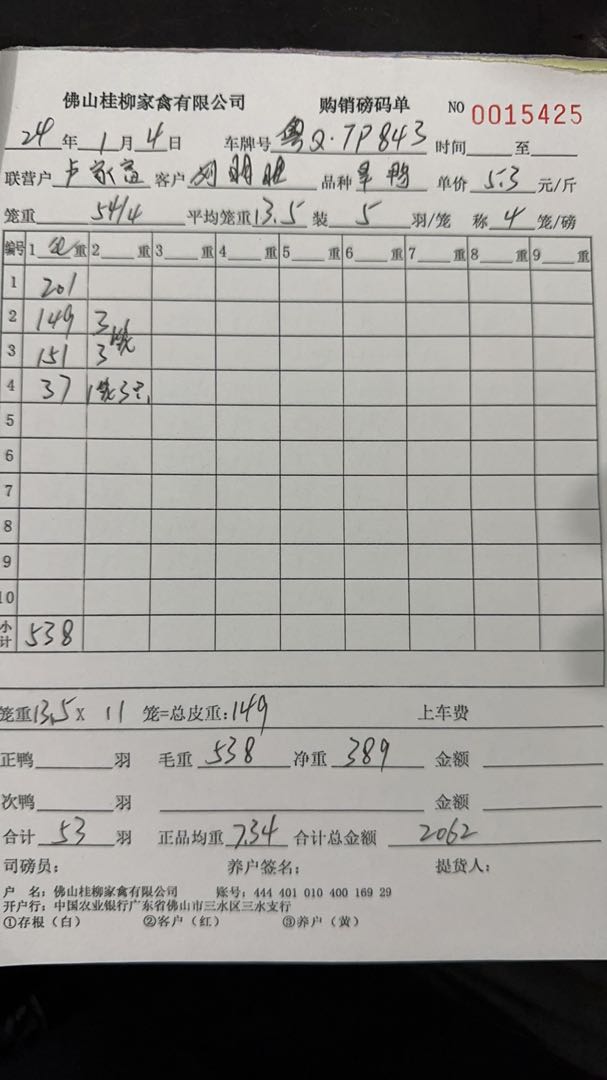 佛山桂柳家禽有限公司 购销磅码单 NO 0015425
24年1月4日 车牌号粤Q·7P843 时间 至
联营户 客户刘明旺 品种 鸭 单价5.3元/斤
笼重54/4 平均笼重13.5 装5羽/笼 称4笼/磅
编号 1 重 2 重 3 重 4 重 5 重 6 重 7 重 8 重 9 重
1 201
2 149 3
3 151 3笼
4 37 1笼3只
5
6
7
8
9
10
小计 538
笼重13.5 X 11 笼=总皮重:149 上车费
正鸭 羽 毛重538 净重389 金额
次鸭 羽 金额
合计53羽 正品均重7.34 合计总金额2062
司磅员: 养户签名: 提货人:
户 名:佛山桂柳家禽有限公司 账号:444 401 010 400 169 29
开户行:中国农业银行广东省佛山市三水区三水支行
①存根(白) ②客户(红) ③养户(黄)